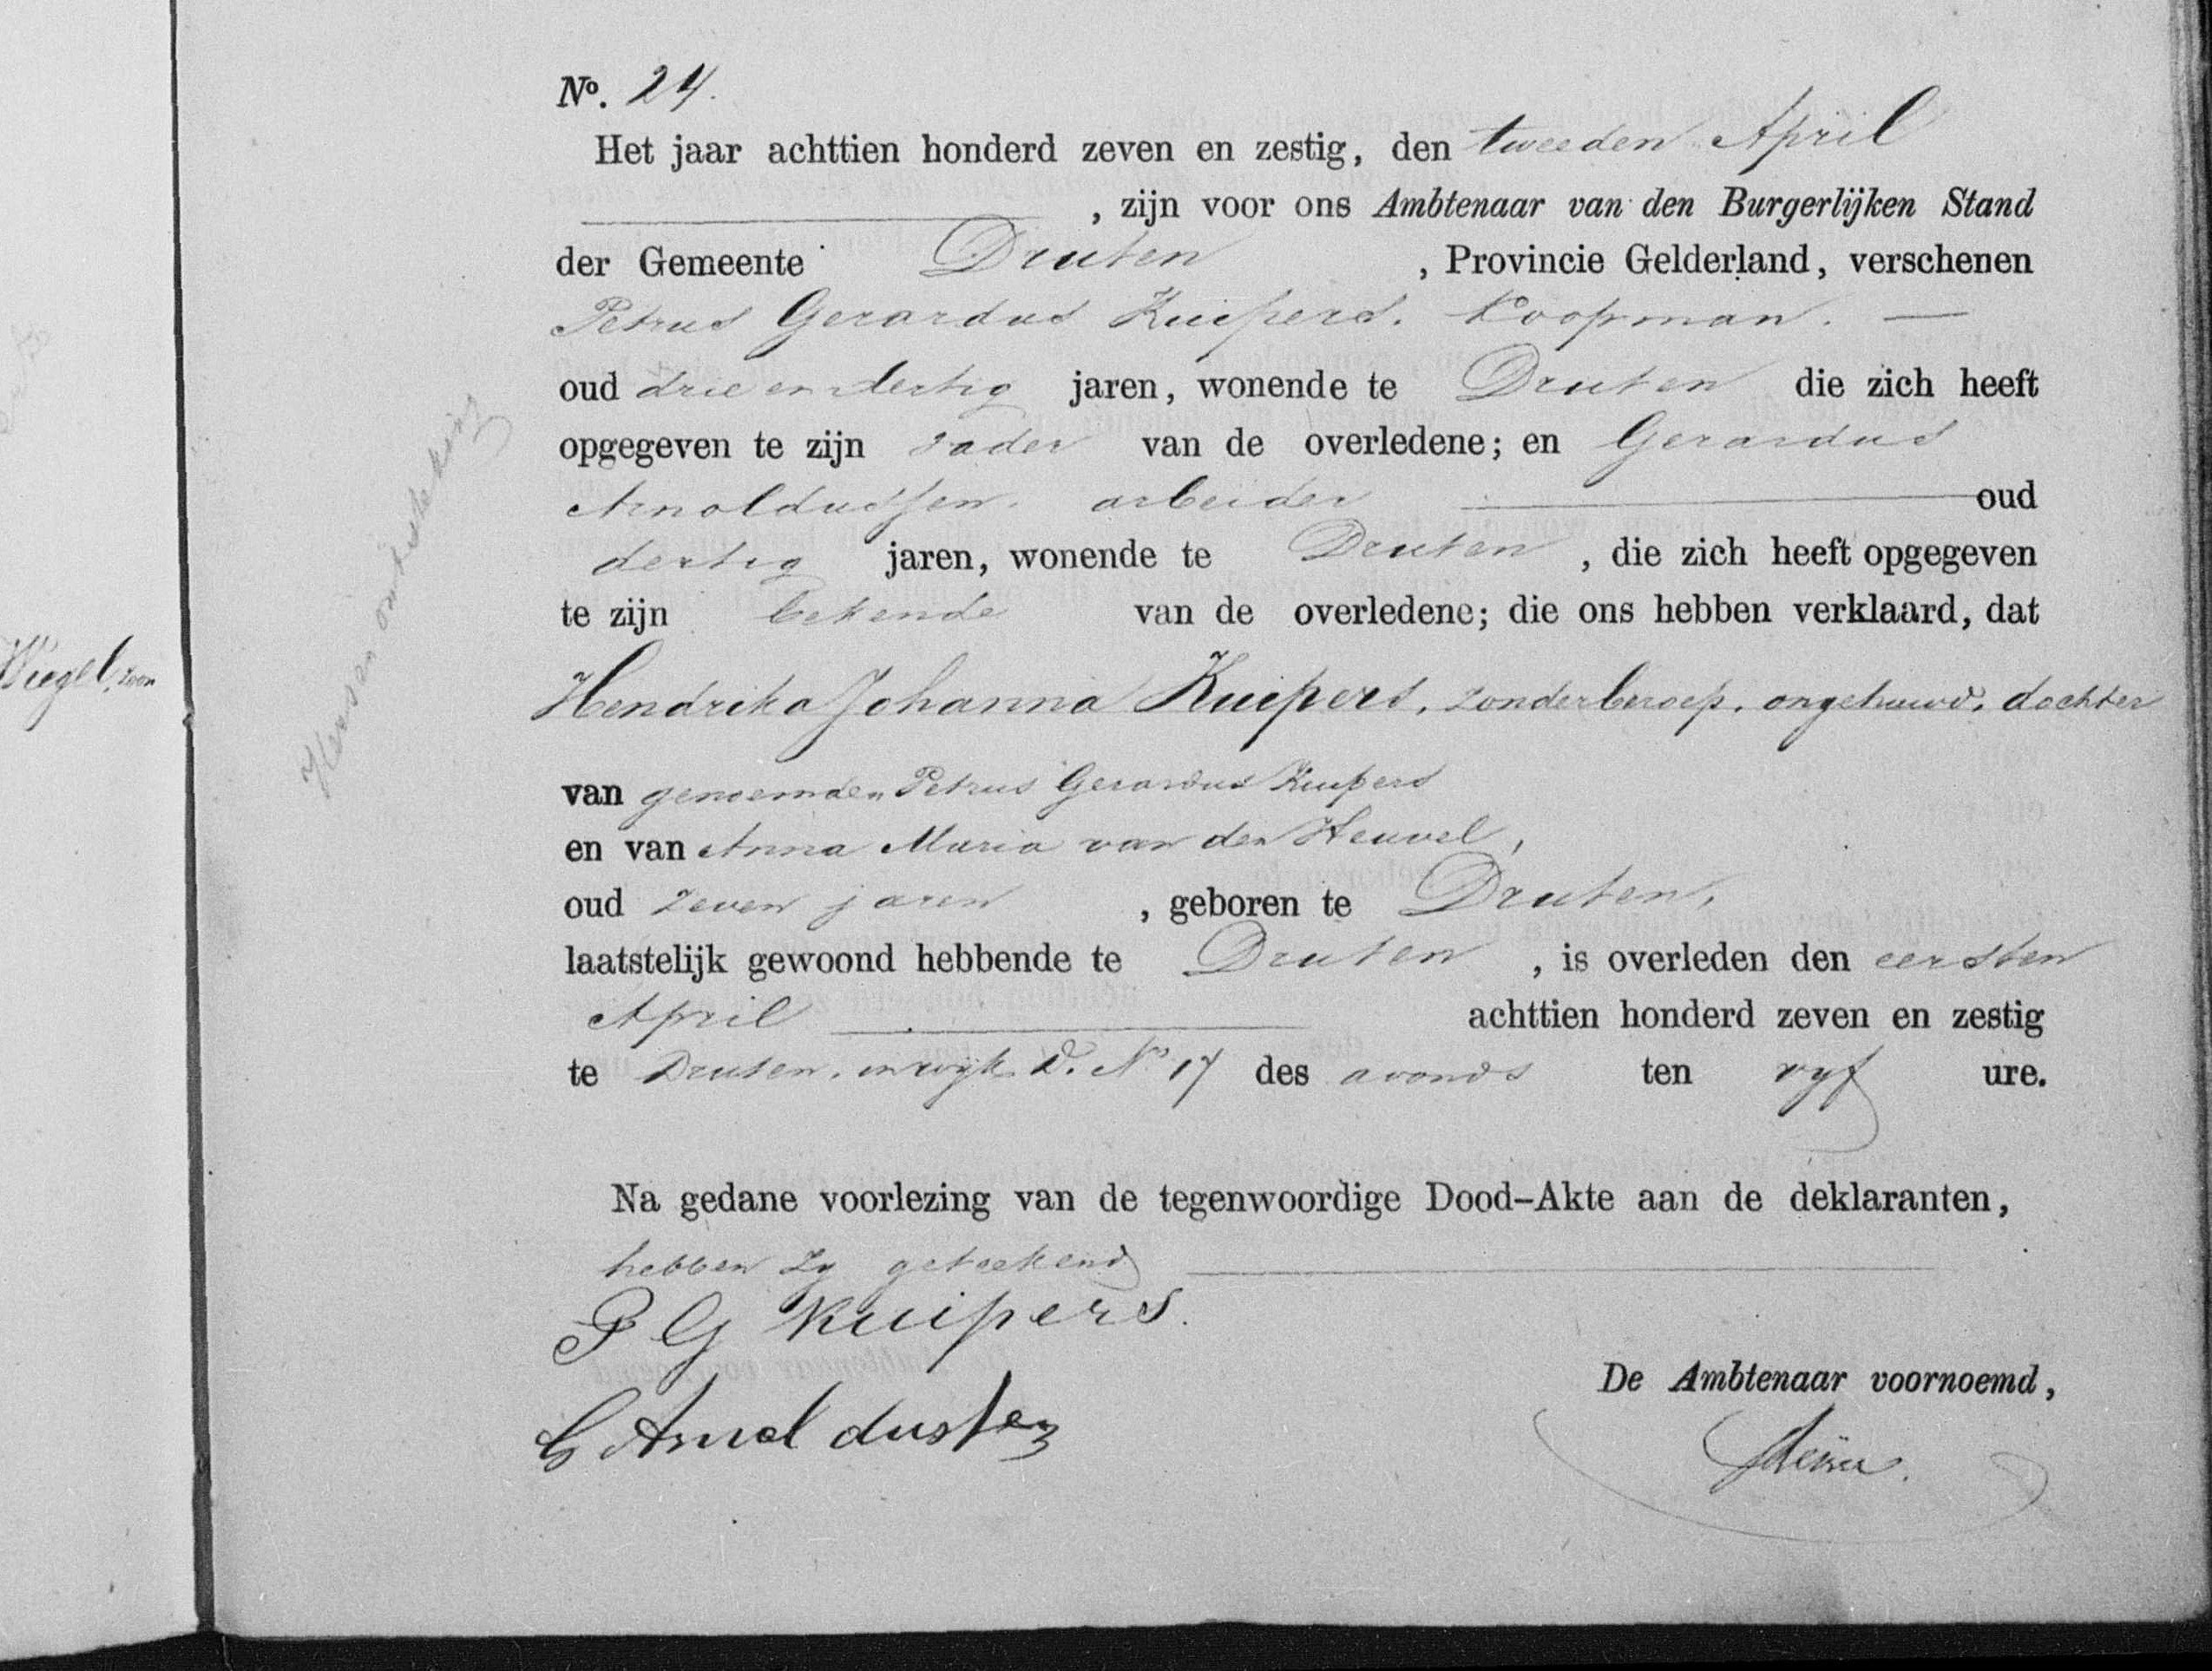 Wiegel, zoon
Hersen ontsteking
No. 24.
Het jaar achttien honderd zeven en zestig, den tweeden April
, zijn voor ons Ambtenaar van den Burgerlijken Stand
der Gemeente Druten , Provincie Gelderland, verschenen
Petrus Gerardus Kuipers. Koopman. —
oud drie en dertig jaren, wonende te Druten die zich heeft
opgegeven te zijn vader van de overledene; en Gerardus
Arnoldussen. arbeider oud
dertig jaren, wonende te Druten , die zich heeft opgegeven
te zijn bekende van de overledene; die ons hebben verklaard, dat
Hendrika Johanna Kuipers, zonder beroep, ongehuwd, dochter
van genoemden Petrus Gerardus Kuipers
en van Anna Maria van den Heuvel,
oud zeven jaren , geboren te Druten,
laatstelijk gewoond hebbende te Druten , is overleden den eersten
April achttien honderd zeven en zestig
te Druten, in wijk D. No 17 des avonds ten vyf ure.
Na gedane voorlezing van de tegenwoordige Dood-Akte aan de deklaranten,
hebben zy geteekend
P G Kuipers.
G Arnoldussen
De Ambtenaar voornoemd,